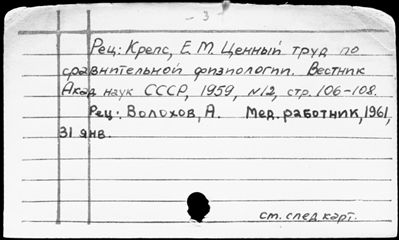 - 3
Рец: Крепс, Е.М. Ценный труд по
сравнительной физиологии. Вестник
Акад. наук СССР, 1959, №12, стр. 106-108.
Рец: Волохов, А. Мед. работник, 1961,
31 янв.
см. след. карт.